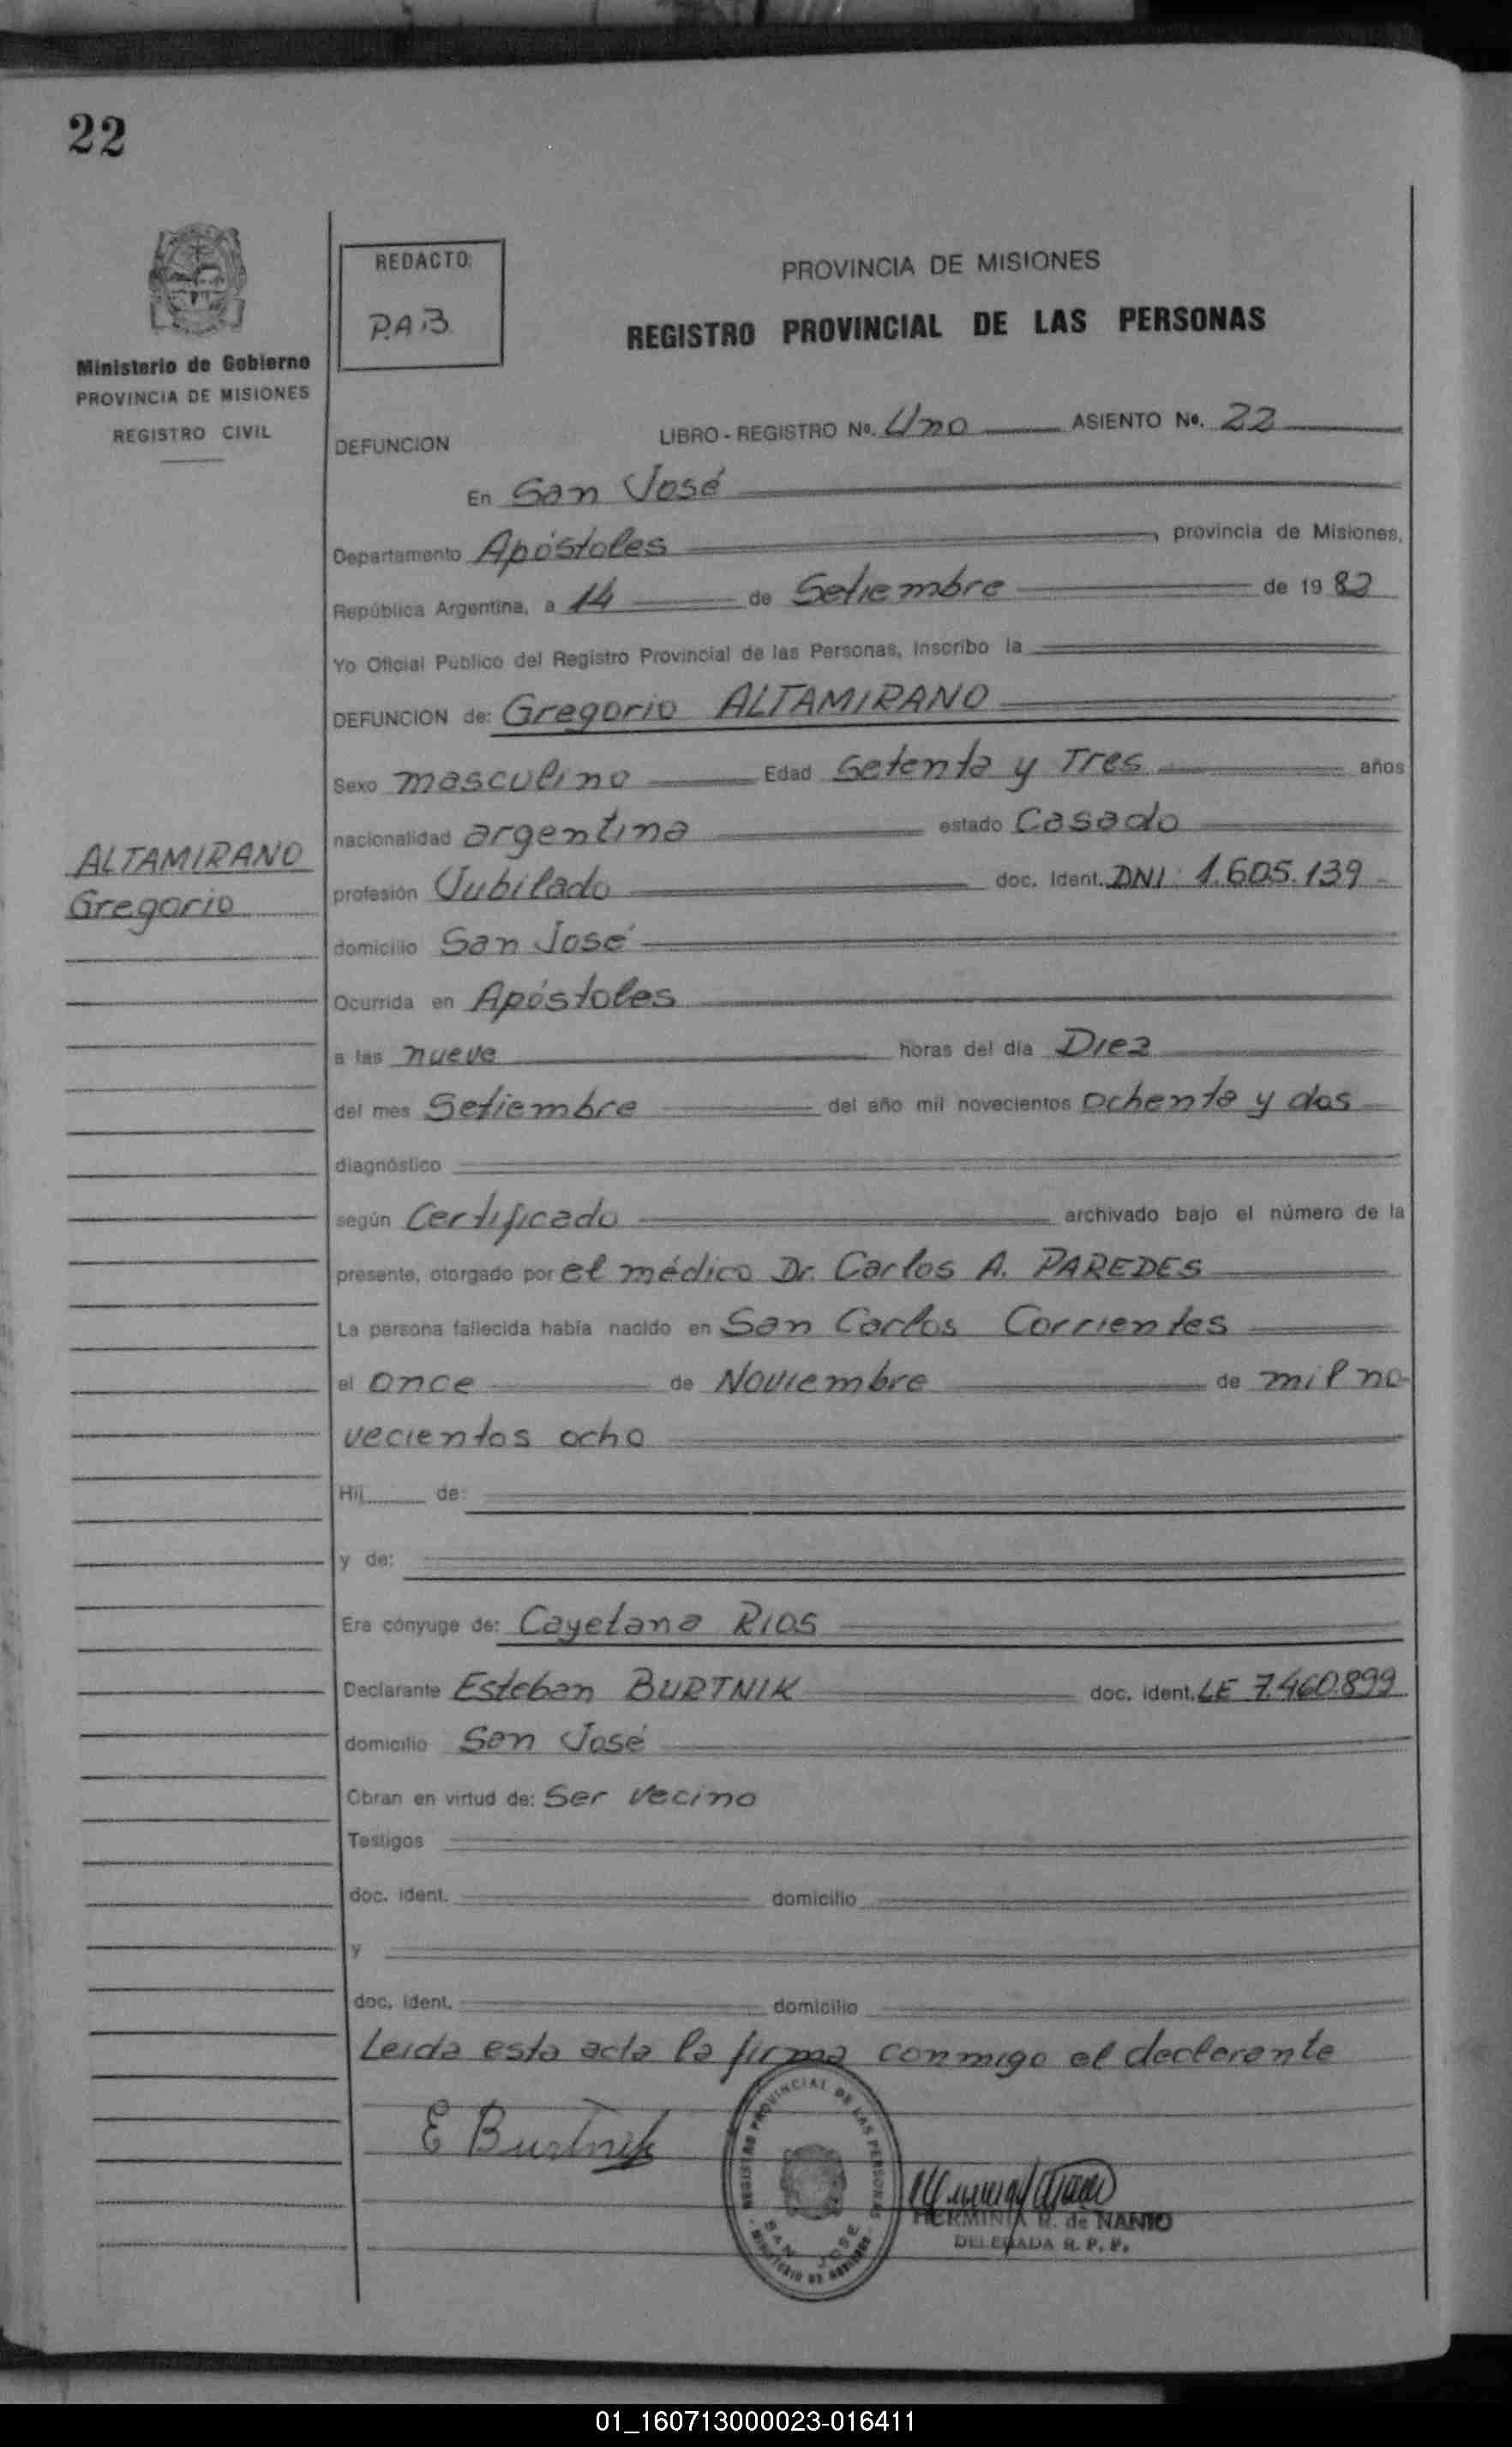 22
REDACTO:
P.A.B
PROVINCIA DE MISIONES
REGISTRO PROVINCIAL DE LAS PERSONAS
Ministerio de Gobierno
PROVINCIA DE MISIONES
REGISTRO CIVIL
DEFUNCION LIBRO - REGISTRO Nº. Uno ASIENTO Nº. 22
En San José
Departamento Apóstoles, provincia de Misiones,
República Argentina, a 14 de Setiembre de 1982
Yo Oficial Público del Registro Provincial de las Personas, inscribo la
DEFUNCION de: Gregorio ALTAMIRANO
Sexo masculino Edad Setenta y Tres años
nacionalidad argentina estado Casado
ALTAMIRANO
Gregorio
profesión Jubilado doc. Ident. DNI 1.605.139
domicilio San José
Ocurrida en Apóstoles
a las nueve horas del día Diez
del mes Setiembre del año mil novecientos ochenta y dos
diagnóstico
según Certificado archivado bajo el número de la
presente, otorgado por el médico Dr. Carlos A. PAREDES
La persona fallecida había nacido en San Carlos Corrientes
el once de Noviembre de mil no-
vecientos ocho
Hij de:
y de:
Era cónyuge de: Cayetana RIOS
Declarante Esteban BURTNIK doc. ident. LE 7.460.899
domicilio San José
Obran en virtud de: Ser vecino
Testigos
doc. ident. domicilio
y
doc. ident. domicilio
Leida esta acta la firma conmigo el declarante
E Burtnik
REGISTRO PROVINCIAL DE LAS PERSONAS
SAN JOSE
MINISTERIO DE GOBIERNO
HERMINIA R. de NANIO
DELEGADA R. P. P.
01_160713000023-016411